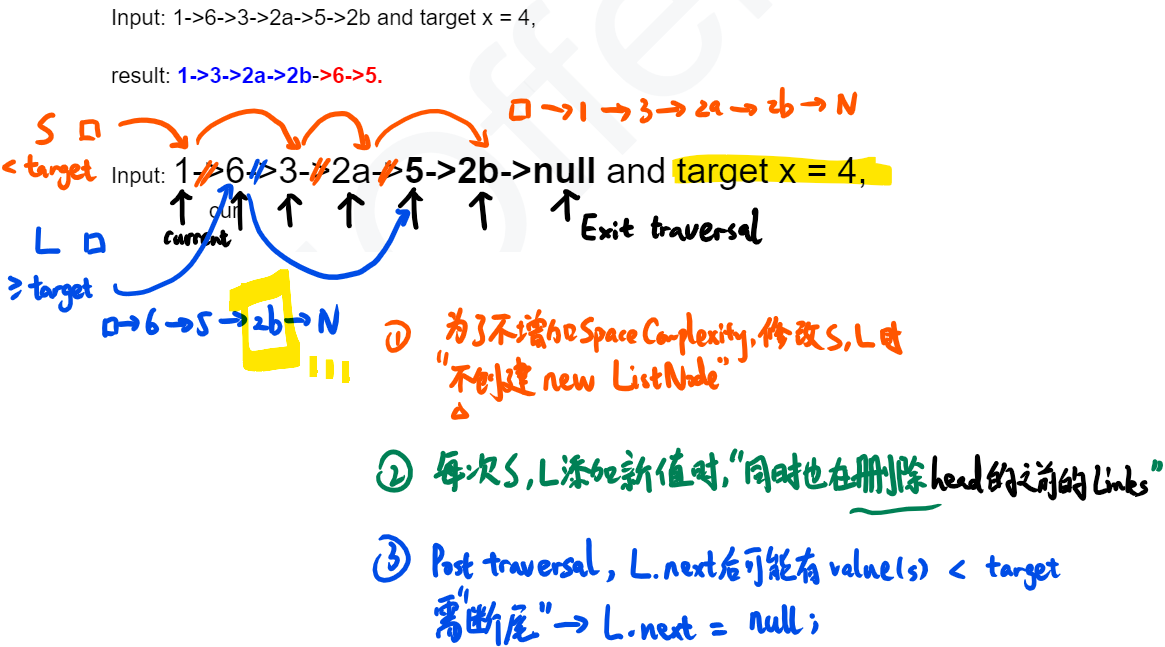 Input: 1->6->3->2a->5->2b and target x = 4,
result: 1->3->2a->2b->6->5.
□→1→3→2a→2b→N
S □
< target
Input: 1->6->3->2a->5->2b->null and target x = 4,
cur
current
Exit traversal
L □
≥ target
□→6→5→2b→N
① 为了不增加Space Complexity,修改S,L时
"不创建 new ListNode"
② 每次S,L添加新值时,"同时也在删除head的之前的Links"
③ Post traversal, L.next后可能有value(s) < target
需"断尾"→ L.next = null;